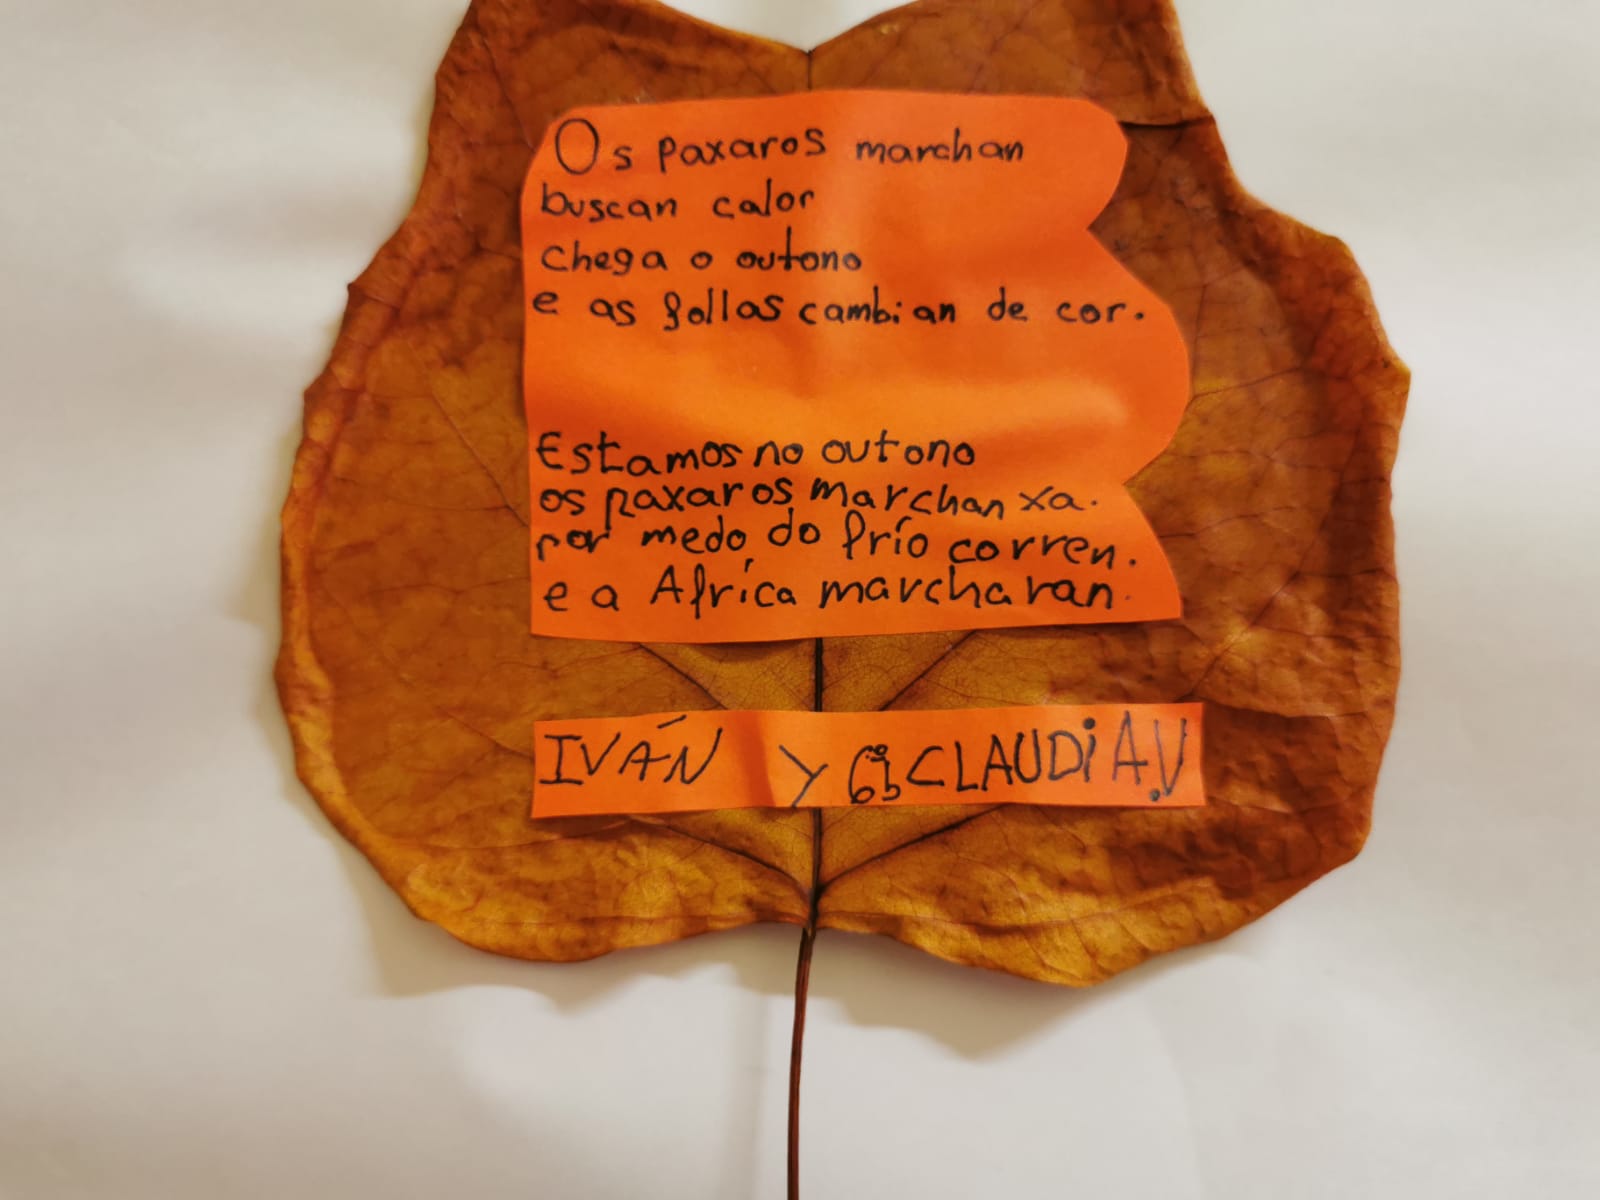 Os paxaros marchan
buscan calor
chega o outono
e as follas cambian de cor.
Estamos no outono
os paxaros marchan xa.
por medo do frío corren.
e a Africa marcharan.
IVÁN y 6ºb CLAUDIA.V